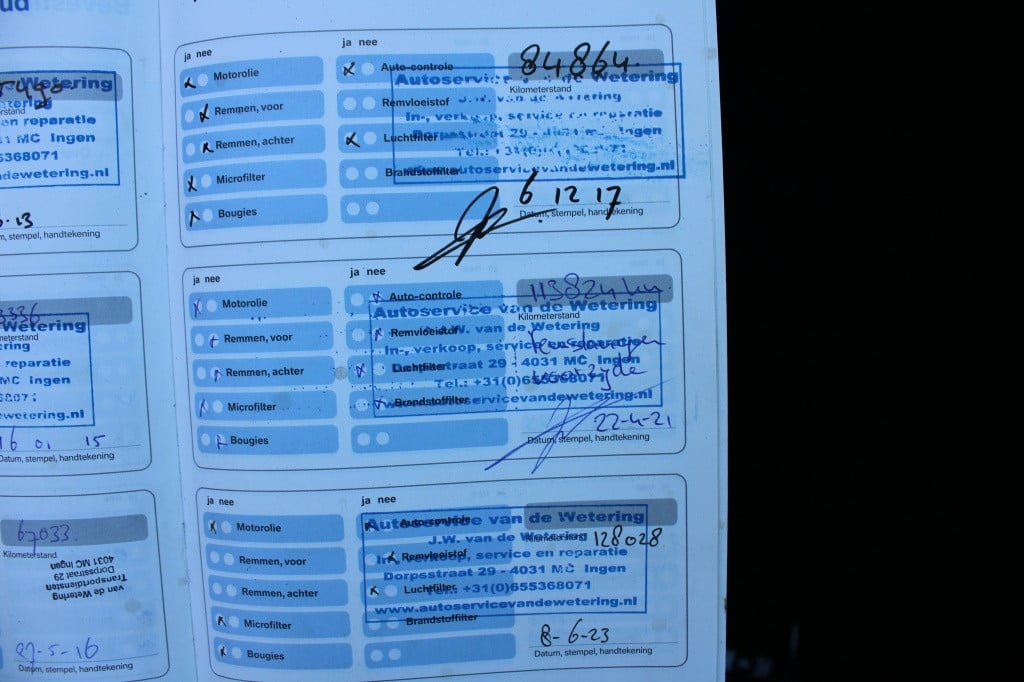 ud
Wetering
Kilometerstand
en reparatie
MC Ingen
655368071
andewetering.nl
13
Datum, stempel, handtekening
3336
Wetering
Kilometerstand
reparatie
MC Ingen
wetering.nl
16 01 15
Datum, stempel, handtekening
67033
Kilometerstand
van de Wetering
Transportdiensten
Dorpsstraat 29
4031 MC Ingen
27-5-16
Datum, stempel, handtekening
ja nee
Motorolie
Remmen, voor
Remmen, achter
Microfilter
Bougies
ja nee
Auto-controle
Remvloeistof
Luchtfilter
Brandstoffilter
84864
Kilometerstand
Autoservice van de Wetering
J.W. van de Wetering
In-, verkoop, service en reparatie
Dorpsstraat 29 - 4031 MC Ingen
www.autoservicevandewetering.nl
6 12 17
Datum, stempel, handtekening
ja nee
Motorolie
Remmen, voor
Remmen, achter
Microfilter
Bougies
ja nee
Auto-controle
Remvloeistof
Luchtfilter
Brandstoffilter
113824 km
Kilometerstand
Autoservice van de Wetering
J.W. van de Wetering
In-, verkoop, service en reparatie
Dorpsstraat 29 - 4031 MC Ingen
Tel.: +31(0)655368071
www.autoservicevandewetering.nl
22-4-21
Datum, stempel, handtekening
ja nee
Motorolie
Remmen, voor
Remmen, achter
Microfilter
Bougies
ja nee
Auto-controle
Remvloeistof
Luchtfilter
Brandstoffilter
Kilometerstand
128028
Autoservice van de Wetering
J.W. van de Wetering
In-, verkoop, service en reparatie
Dorpsstraat 29 - 4031 MC Ingen
Tel.: +31(0)655368071
www.autoservicevandewetering.nl
8-6-23
Datum, stempel, handtekening